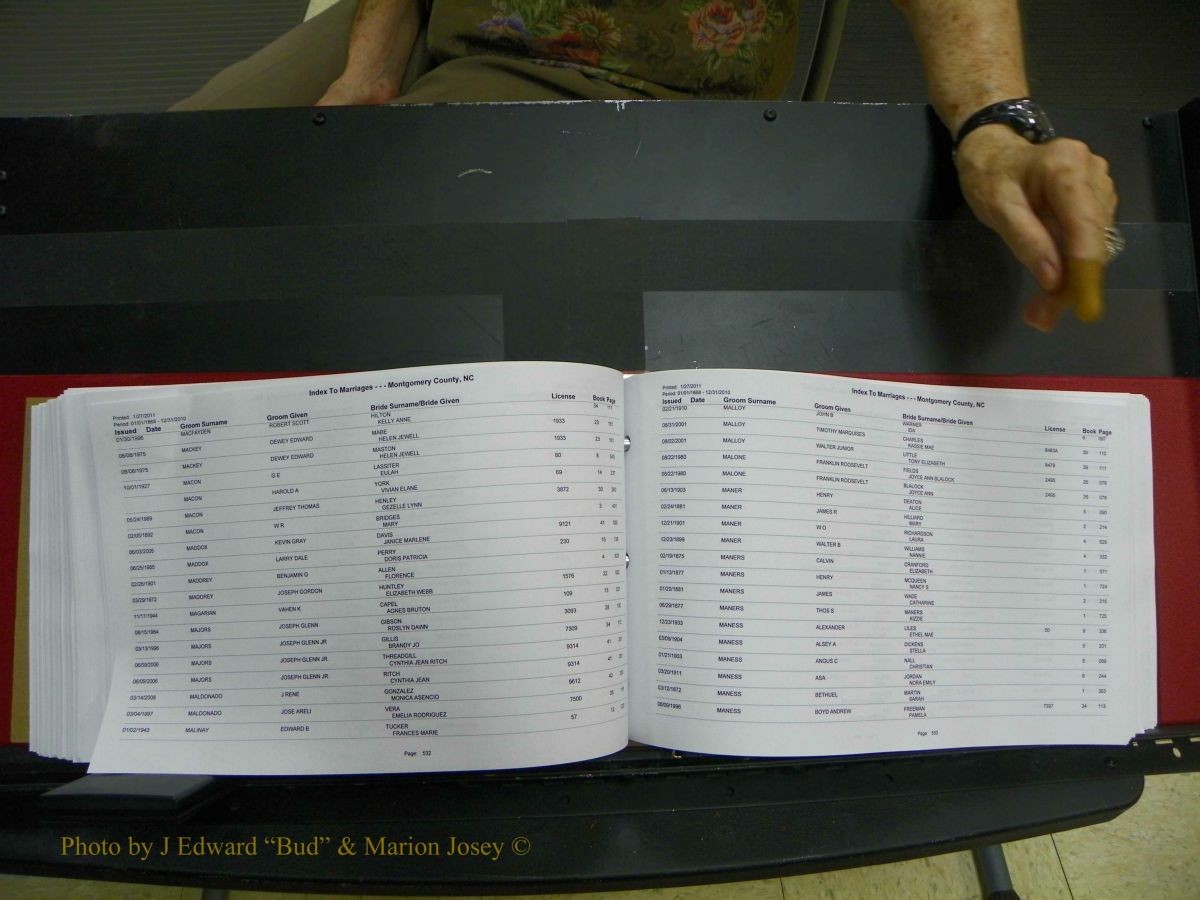 Index To Marriages - - - Montgomery County, NC
Printed: 1/27/2011
Period: 01/01/1868 - 12/31/2010
Issued Date Groom Surname Groom Given Bride Surname/Bride Given License Book Page
01/30/1996 MACFAYDEN ROBERT SCOTT HILTON 34 111
KELLY ANNE
06/08/1975 MACKEY DEWEY EDWARD MABE 1933 23 181
HELEN JEWELL
MACKEY DEWEY EDWARD MASTON 1933 23 181
HELEN JEWELL
10/01/1927 MACON G E LASSITER 80 8
EULAH
MACON HAROLD A YORK 69 14
VIVIAN ELANE
05/24/1989 MACON JEFFREY THOMAS HENLEY 3872 30
GEZELLE LYNN
02/05/1892 MACON W R BRIDGES 3
MARY
06/03/2005 MADDOX KEVIN GRAY DAVIS 9121 41
JANICE MARLENE
06/25/1965 MADDOX LARRY DALE PERRY 230 15
DORIS PATRICIA
02/26/1901 MADDREY BENJAMIN G ALLEN 4
FLORENCE
03/29/1972 MADDREY JOSEPH GORDON HUNTLEY 1576 22
ELIZABETH WEBB
11/17/1944 MAGARIAN VAHEN K CAPEL 109 13
AGNES BRUTON
06/15/1984 MAJORS JOSEPH GLENN GIBSON 3093 28
ROSLYN DAWN
03/13/1996 MAJORS JOSEPH GLENN JR GILLIS 7309 34
BRANDY JO
06/09/2006 MAJORS JOSEPH GLENN JR. THREADGILL 9314 41
CYNTHIA JEAN RITCH
06/09/2006 MAJORS JOSEPH GLENN JR. RITCH 9314 41
CYNTHIA JEAN
03/14/2008 MALDONADO J RENE GONZALEZ 9612 42
MONICA ASENCIO
03/04/1997 MALDONADO JOSE ARELI VERA 7500 35
EMELIA RODRIGUEZ
01/02/1943 MALINAY EDWARD B TUCKER 57 12
FRANCES MARIE
Page: 532
Index To Marriages - - - Montgomery County, NC
Printed: 1/27/2011
Period: 01/01/1868 - 12/31/2010
Issued Date Groom Surname Groom Given Bride Surname/Bride Given License Book Page
02/21/1910 MALLOY JOHN B WARNER 6 097
IDA
08/31/2001 MALLOY TIMOTHY MARQUISES CHARLES 8483A 39 110
KASSIE MAE
08/22/2001 MALLOY WALTER JUNIOR LITTLE 8479 39 111
TONY ELIZABETH
08/22/1980 MALONE FRANKLIN ROOSEVELT FIELDS 2495 26 078
JOYCE ANN BLALOCK
08/22/1980 MALONE FRANKLIN ROOSEVELT BLALOCK 2495 26 078
JOYCE ANN
06/13/1903 MANER HENRY DEATON 5 090
ALICE
02/24/1881 MANER JAMES R HILLIARD 2 214
MARY
12/21/1901 MANER W O RICHARDSON 4 625
LAURA
12/23/1899 MANER WALTER B WILLIAMS 4 332
NANNIE
02/19/1875 MANERS CALVIN CRANFORD 1 571
ELIZABETH
01/13/1877 MANERS HENRY MCQUEEN 1 724
NANCY S
01/20/1881 MANERS JAMES WADE 2 216
CATHARINE
06/29/1877 MANERS THOS S MANERS 1 725
KIZDE
12/23/1933 MANESS ALEXANDER LILES 50 9 336
ETHEL MAE
03/09/1904 MANESS ALSEY A DICKENS 5 201
STELLA
01/21/1903 MANESS ANGUS C NALL 5 069
CHRISTIAN
03/20/1911 MANESS ASA JORDAN 6 244
NORA EMILY
03/12/1872 MANESS BETHUEL MARTIN 1 303
SARAH
06/09/1996 MANESS BOYD ANDREW FREEMAN 7397 34 113
PAMELA
Page: 533
Photo by J Edward “Bud” & Marion Josey ©